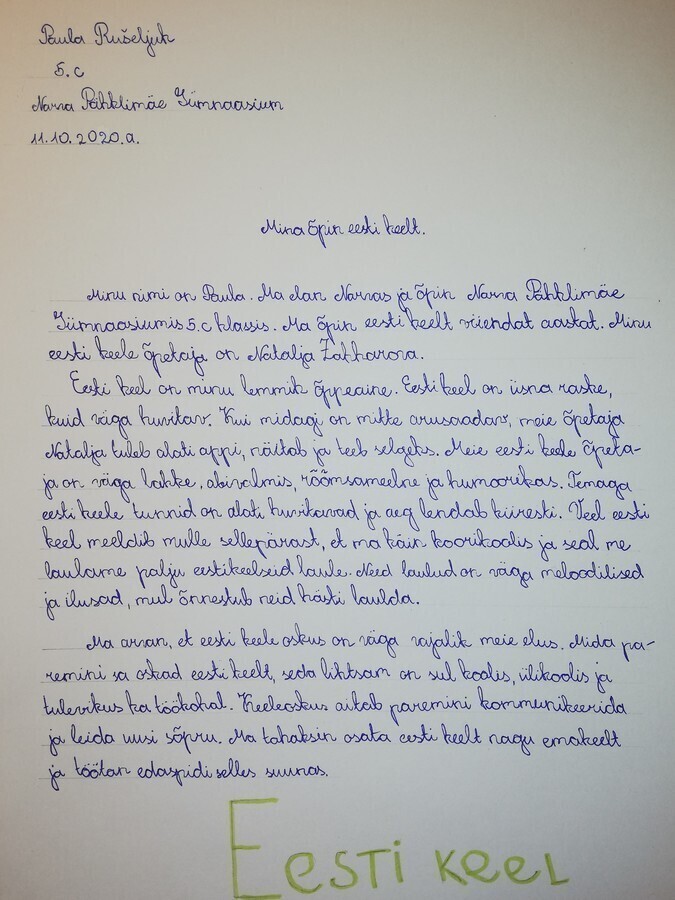 Paula Rušeljuk
5.c
Narva Pähklimäe Gümnaasium
11.10.2020.a.
Mina õpin eesti keelt.
Minu nimi on Paula. Ma elan Narvas ja õpin Narva Pähklimäe
Gümnaasiumis 5.c klassis. Ma õpin eesti keelt viiendat aastat. Minu
eesti keele õpetaja on Natalja Zahharova.
Eesti keel on minu lemmik õppeaine. Eesti keel on üsna raske,
kuid väga huvitav. Kui midagi on mitte arusaadav, meie õpetaja
Natalja tuleb alati appi, näitab ja teeb selgeks. Meie eesti keele õpeta-
ja on väga lahke, abivalmis, rõõmsameelne ja humoorikas. Temaga
eesti keele tunnid on alati huvitavad ja aeg lendab kiiresti. Veel eesti
keel meeldib mulle sellepärast, et ma käin koorikoolis ja seal me
laulame palju eestikeelseid laule. Need laulud on väga meloodilised
ja ilusad, mul õnnestub neid hästi laulda.
Ma arvan, et eesti keele oskus on väga vajalik meie elus. Mida pa-
remini sa oskad eesti keelt, seda lihtsam on sul koolis, ülikoolis ja
tulevikus ka töökohal. Keeleoskus aitab paremini kommunikeerida
ja leida uusi sõpru. Ma tahaksin osata eesti keelt nagu emakeelt
ja töötan edaspidi selles suunas.
Eesti keel